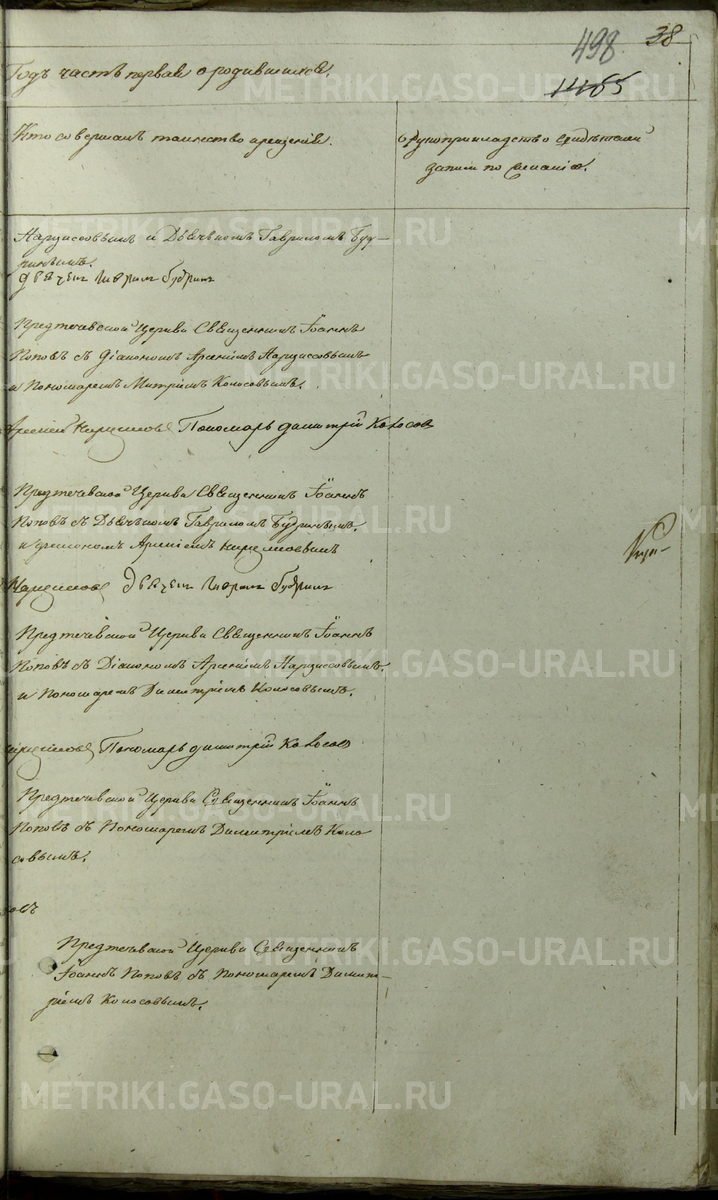 498
38
1465
Годъ часть первая о родившихся.
Кто совершалъ таинство крещенія.
Рукоприкладство свидѣтелей
записи по желанію.
Нарциссовымъ и Дьячкомъ Гавриломъ Буд-
ринымъ.
Дьячекъ Гаврилъ Будринъ
Предтечевской Церкви Священникъ Іоаннъ
Поповъ съ Діакономъ Арсеніемъ Нарциссовымъ
и Пономаремъ Митріемъ Колосовымъ.
Арсеній Нарциссовъ Пономарь Димитрій Колосов
Предтечевской Церкви Священникъ Іоаннъ
Поповъ съ Дьячкомъ Гавриломъ Будринымъ.
и Діякономъ Арсеніемъ Нарциссовымъ
Нарциссовъ Дьячекъ Гаврилъ Будринъ
Предтечевской Церкви Священникъ Іоаннъ
Поповъ съ Діакономъ Арсеніемъ Нарциссовымъ.
и Пономаремъ Димитріемъ Колосовымъ.
Нарциссовъ Пономарь Димитрій Колосов
Предтечевской Церкви Священникъ Іоаннъ
Поповъ съ Пономаремъ Димитріемъ Коло
совымъ.
овъ
Предтечевской Церкви Священникъ
Іоаннъ Поповъ съ Пономаремъ Димит-
ріемъ Колосовымъ.
METRIKI.GASO-URAL.RU